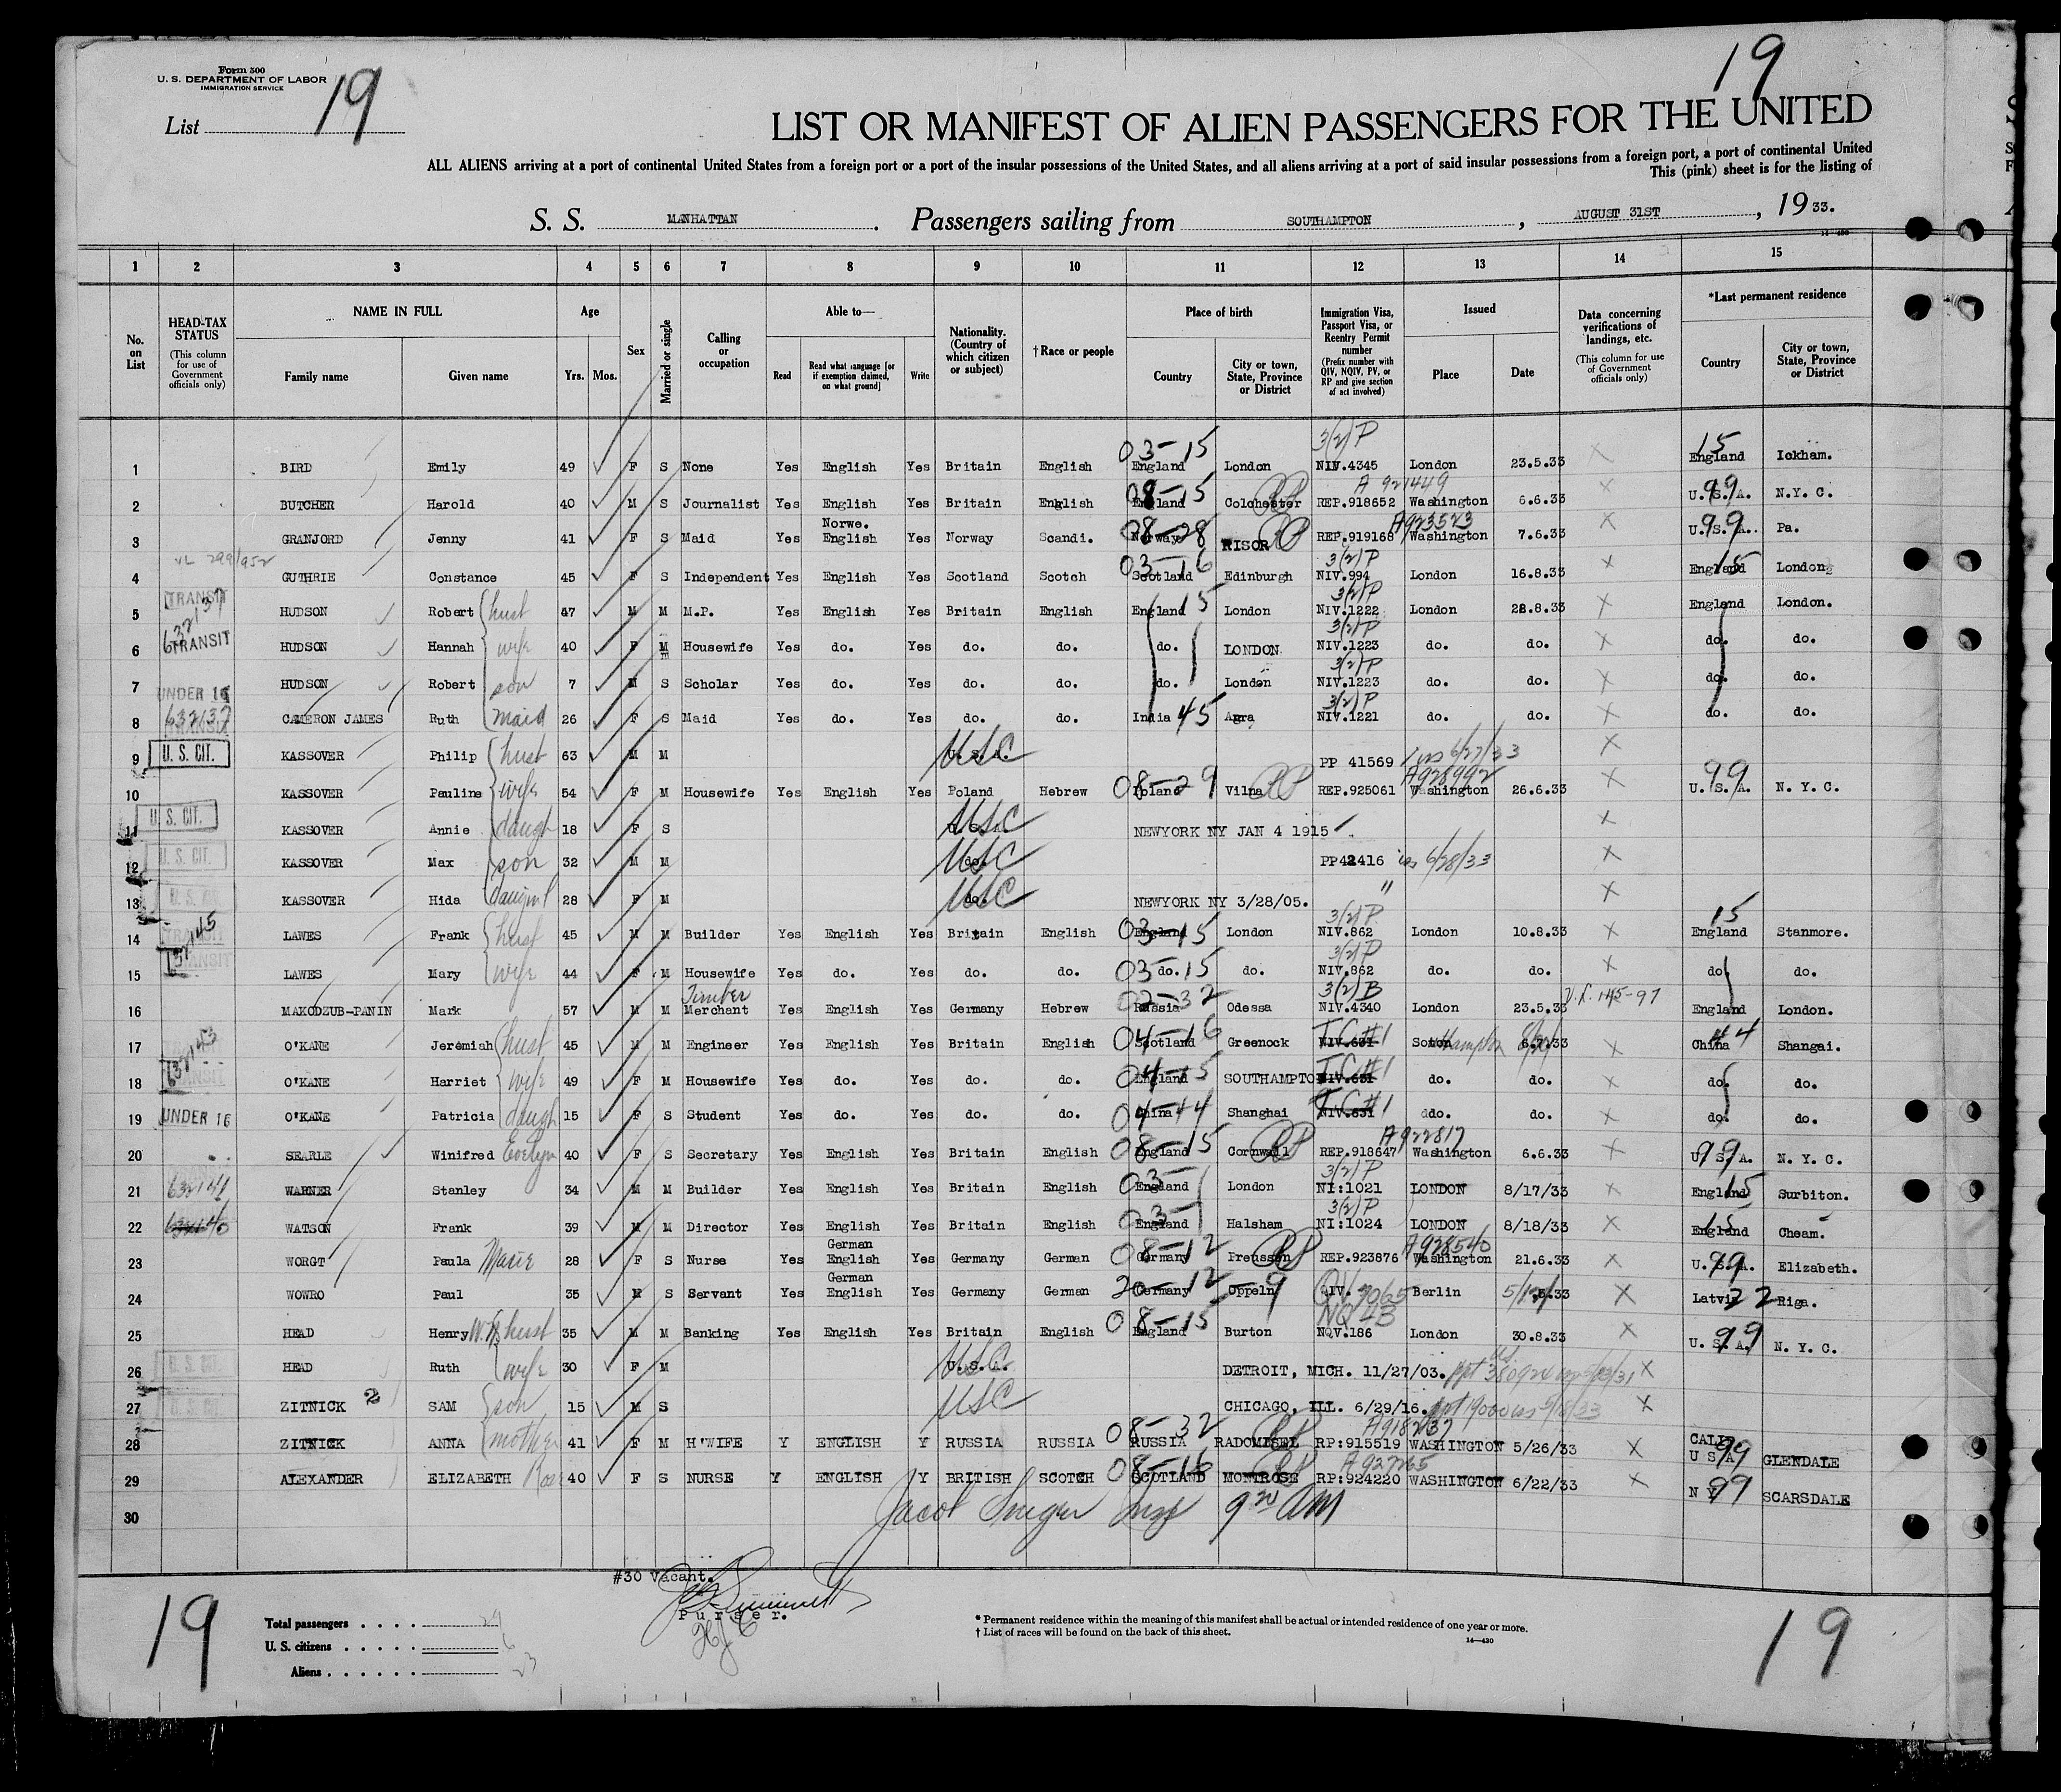 Form 500
U. S. DEPARTMENT OF LABOR
IMMIGRATION SERVICE
List 19
19
LIST OR MANIFEST OF ALIEN PASSENGERS FOR THE UNITED
ALL ALIENS arriving at a port of continental United States from a foreign port or a port of the insular possessions of the United States, and all aliens arriving at a port of said insular possessions from a foreign port, a port of continental United
This (pink) sheet is for the listing of
S. S. MANHATTAN. Passengers sailing from SOUTHAMPTON, AUGUST 31ST, 1933.
1 2 3 4 5 6 7 8 9 10 11 12 13 14 15
No. on List
HEAD-TAX STATUS (This column for use of Government officials only)
NAME IN FULL Family name Given name
Age Yrs. Mos.
Sex
Married or single
Calling or occupation
Able to— Read Read what language [or if exemption claimed, on what ground] Write
Nationality. (Country of which citizen or subject)
†Race or people
Place of birth Country City or town, State, Province or District
Immigration Visa, Passport Visa, or Reentry Permit number (Prefix number with QIV, NQIV, PV, or RP and give section of act involved)
Issued Place Date
Data concerning verifications of landings, etc. (This column for use of Government officials only)
*Last permanent residence Country City or town, State, Province or District
1 BIRD Emily 49 F S None Yes English Yes Britain English 03-15 England London 3(2)P NIV.4345 London 23.5.33 15 England Ickham.
2 BUTCHER Harold 40 M S Journalist Yes English Yes Britain English 08-15 England Colchester A 921449 REP.918652 Washington 6.6.33 U.S.A. 99 N.Y.C.
3 GRANJORD Jenny 41 F S Maid Yes Norwe. English Yes Norway Scandi. 08-28 Norway RISOR A923523 REP.919168 Washington 7.6.33 U.S.A. 99 Pa.
4 GUTHRIE Constance 45 F S Independent Yes English Yes Scotland Scotch 03-16 Scotland Edinburgh 3(2)P NIV.994 London 16.8.33 England 15 London
5 TRANSIT HUDSON Robert hust 47 M M M.P. Yes English Yes Britain English England 15 London 3(2)P NIV.1222 London 28.8.33 England London.
6 TRANSIT HUDSON Hannah wife 40 F M Housewife Yes do. Yes do. do. do. LONDON 3(2)P NIV.1223 do. do. do. do.
7 UNDER 16 HUDSON Robert son 7 M S Scholar Yes do. Yes do. do. do. London 3(2)P NIV.1223 do. do. do. do.
8 632137 CAMERON JAMES Ruth maid 26 F S Maid Yes do. Yes do. do. India 45 Agra 3(2)P NIV.1221 do. do. do. do.
9 U. S. CIT. KASSOVER Philip hust 63 M M U.S.A. USC PP 41569 iss 6/27/33
10 KASSOVER Pauline wife 54 F M Housewife Yes English Yes Poland Hebrew 08-29 Poland Vilna A928992 REP.925061 Washington 26.6.33 U.S.A. 99 N.Y.C.
11 U. S. CIT. KASSOVER Annie daugh 18 F S USC NEWYORK NY JAN 4 1915
12 U. S. CIT. KASSOVER Max son 32 M M do. USC PP42416 iss 6/28/33
13 KASSOVER Hida 28 F M do. USC NEWYORK NY 3/28/05. "
14 LAWES Frank hust 45 M M Builder Yes English Yes Britain English 03-15 England London 3(2)P NIV.862 London 10.8.33 15 England Stanmore.
15 LAWES Mary wife 44 F M Housewife Yes do. Yes do. do. 03-15 do. do. 3(2)P NIV.862 do. do. do. do.
16 MAKODZUB-PANIN Mark 57 M M Timber Merchant Yes English Yes Germany Hebrew 02-32 Russia Odessa 3(2)B NIV.4340 London 23.5.33 England London.
17 O'KANE Jeremiah hust 45 M M Engineer Yes English Yes Britain English 04-16 Scotland Greenock NIV.631 Southampton China 44 Shangai.
18 O'KANE Harriet wife 49 F M Housewife Yes do. Yes do. do. 04-15 England SOUTHAMPTON NIV.631 do. do. do. do.
19 UNDER 16 O'KANE Patricia daugh 15 F S Student Yes do. Yes do. do. 04-44 China Shanghai NIV.631 do. do. do. do.
20 SEARLE Winifred Evelyn 40 F S Secretary Yes English Yes Britain English 08-15 England Cornwall A922817 REP.918647 Washington 6.6.33 U.S.A. 99 N.Y.C.
21 632141 WARNER Stanley 34 M M Builder Yes English Yes Britain English 03- England London 3(2)P NI:1021 LONDON 8/17/33 England 15 Surbiton.
22 WATSON Frank 39 M M Director Yes English Yes Britain English 03- England Halsham 3(2)P NI:1024 LONDON 8/18/33 England 15 Cheam.
23 WORGT Paula Marie 28 F S Nurse Yes German English Yes Germany German 08-12 Germany Preussen A928540 REP.923876 Washington 21.6.33 U.S.A. 99 Elizabeth.
24 WOWRO Paul 35 M S Servant Yes German English Yes Germany German 20-12 Germany Oppeln QIV. Berlin Latvia 22 Riga.
25 HEAD Henry hust 35 M M Banking Yes English Yes Britain English 08-15 England Burton NQV.186 London 30.8.33 U.S.A. 99 N.Y.C.
26 HEAD Ruth wife 30 F M U.S.A. USC DETROIT, MICH. 11/27/03.
27 ZITNICK SAM son 15 M S USC CHICAGO, ILL. 6/29/16.
28 ZITNICK ANNA mother 41 F M H'WIFE Y ENGLISH Y RUSSIA RUSSIA 08-32 RUSSIA RADOMISEL A918237 RP:915519 WASHINGTON 5/26/33 CALIF USA 99 GLENDALE
29 ALEXANDER ELIZABETH 40 F S NURSE Y ENGLISH Y BRITISH SCOTCH 08-16 SCOTLAND MONTROSE A927265 RP:924220 WASHINGTON 6/22/33 N Y 99 SCARSDALE
30
Jacob AM
#30 Vacant.
Purser.
19
Total passengers . . . . 29
U. S. citizens . . . . . 6
Aliens . . . . . . 23
* Permanent residence within the meaning of this manifest shall be actual or intended residence of one year or more.
† List of races will be found on the back of this sheet.
14—430
19